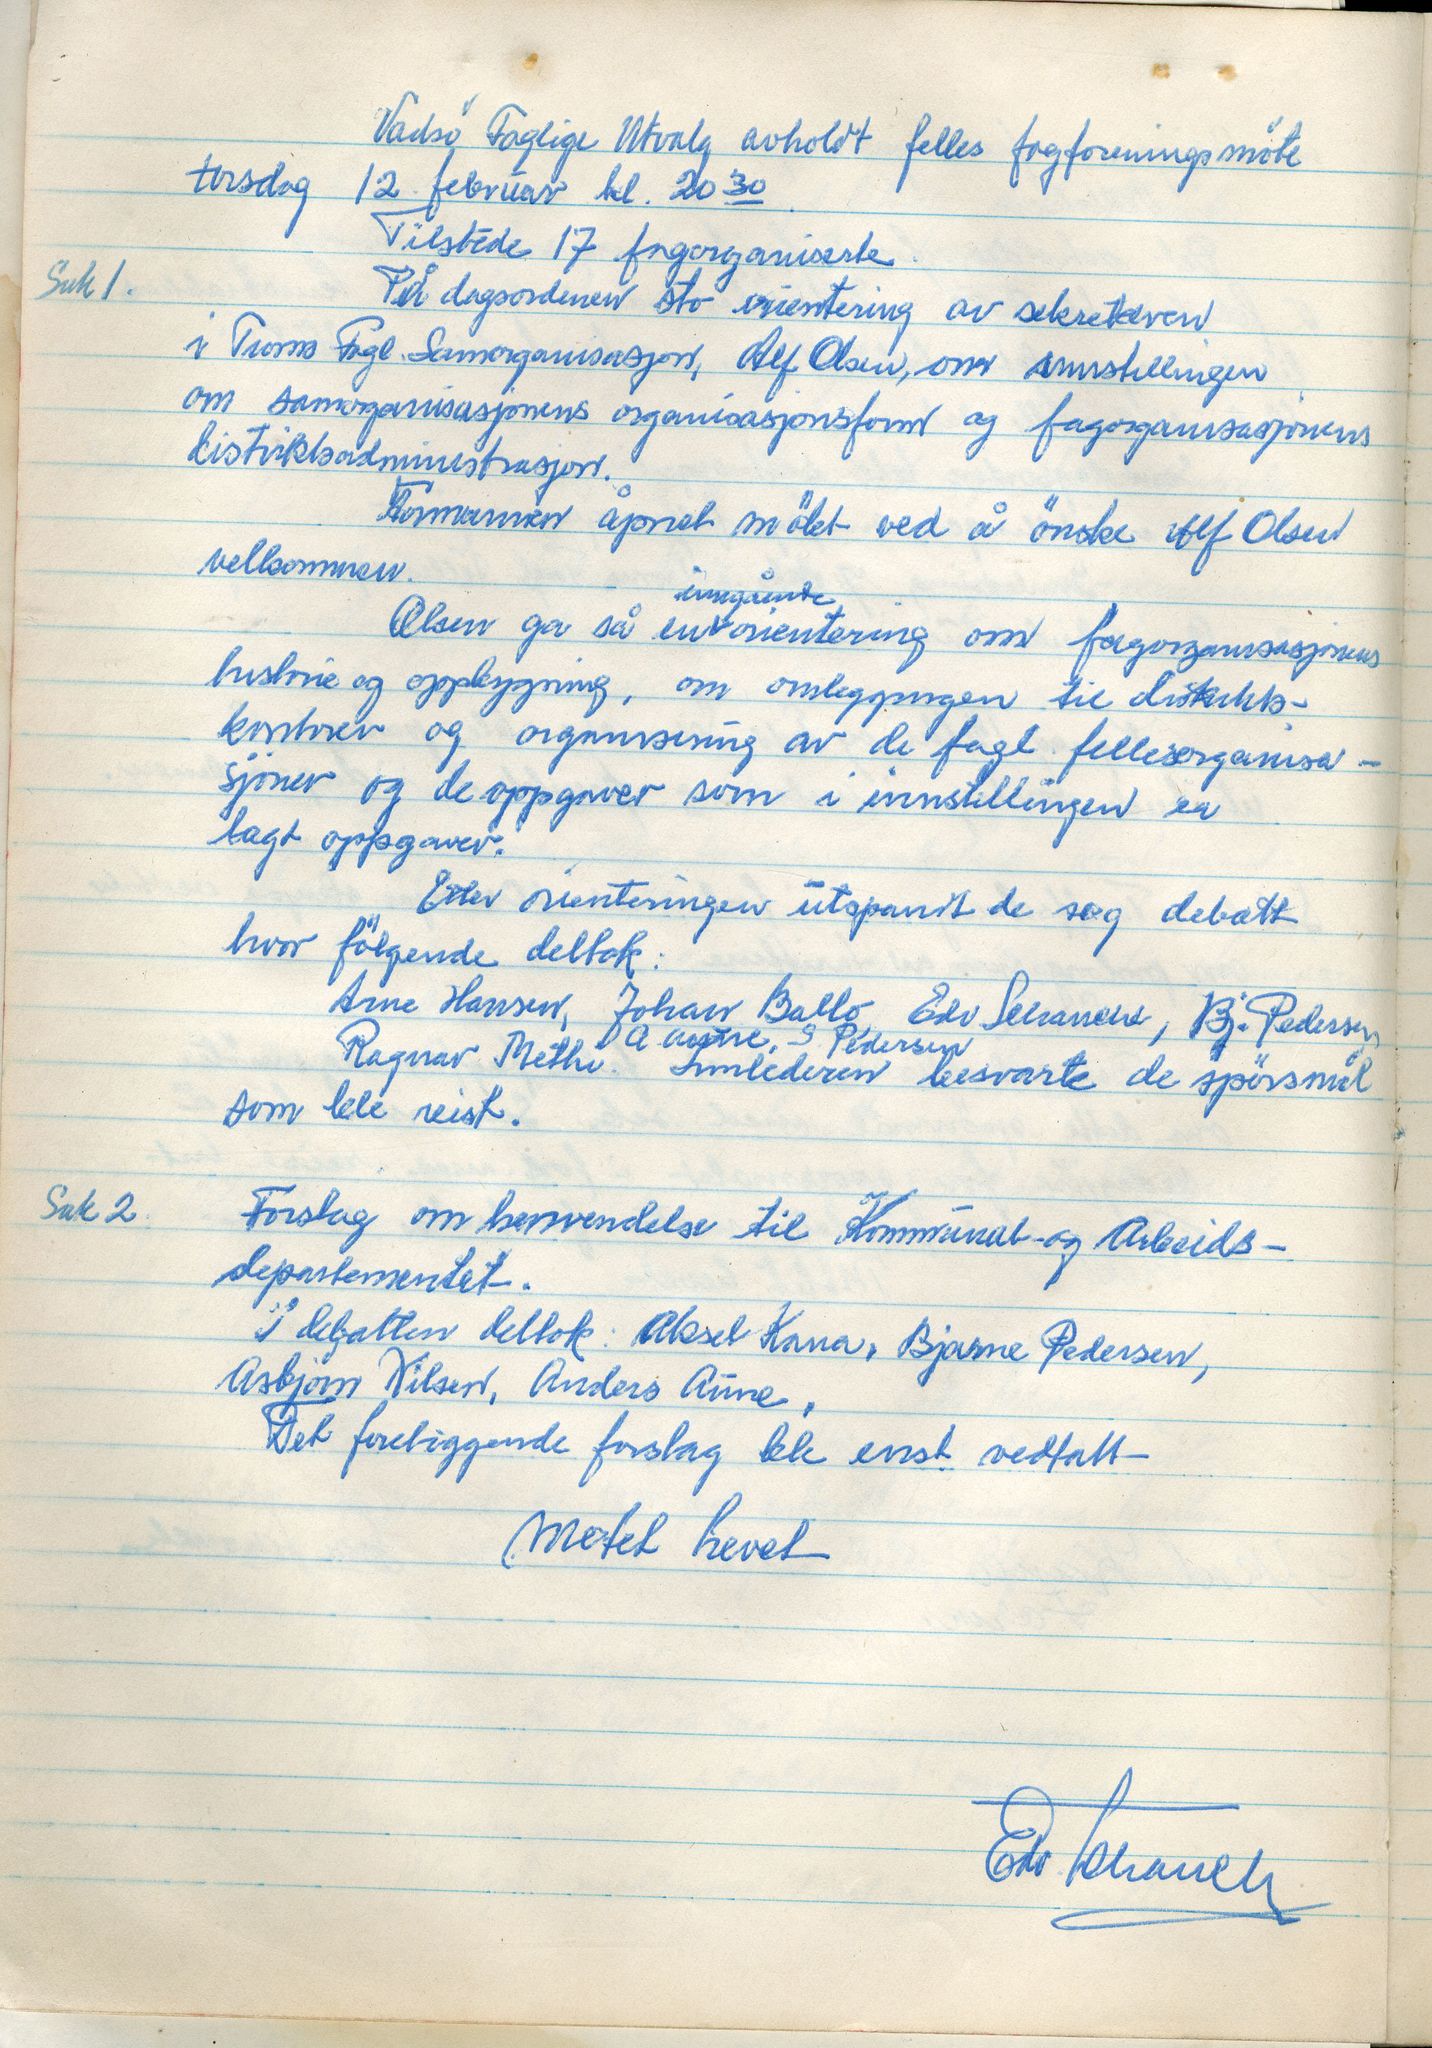 Vadsö Faglige Utvalg avholdt felles fagforeningsmöte
torsdag 12. februar kl. 20 30
Tilstede 17 fagorganiserte.
Sak 1.
På dagsordenen sto orientering av sekretæren
i Troms Fagl. Samorganisasjon, Alf Olsen, om innstillingen
om samorganisasjonens organisasjonsform og fagorganisasjonens
distriktsadministrasjon.
Formannen åpnet mötet ved å önske Alf Olsen
velkommen.
inngående
Olsen ga så en orientering om fagorganisasjonens
historie og oppbygning, om omleggingen til distrikts-
kontorer og organisering av de fagl. fellesorganisa-
sjoner og de oppgaver som i innstillingen er
lagt oppgaver.
Etter orienteringen utspant de seg debatt
hvor fölgende deltok:
Arne Hansen, Johan Ballo, Edv Schanche, Bj. Pedersen
A Aune, S Pedersen
Ragnar Methi. Innlederen besvarte de spörsmål
som ble reist.
Sak 2.
Forslag om henvendelse til Kommunal- og Arbeids-
departementet.
I debatten deltok: Aksel Kana, Bjarne Pedersen,
Asbjörn Nilsen, Anders Aune.
Det foreliggende forslag ble enst. vedtatt
Mötet hevet
Edv Schanch